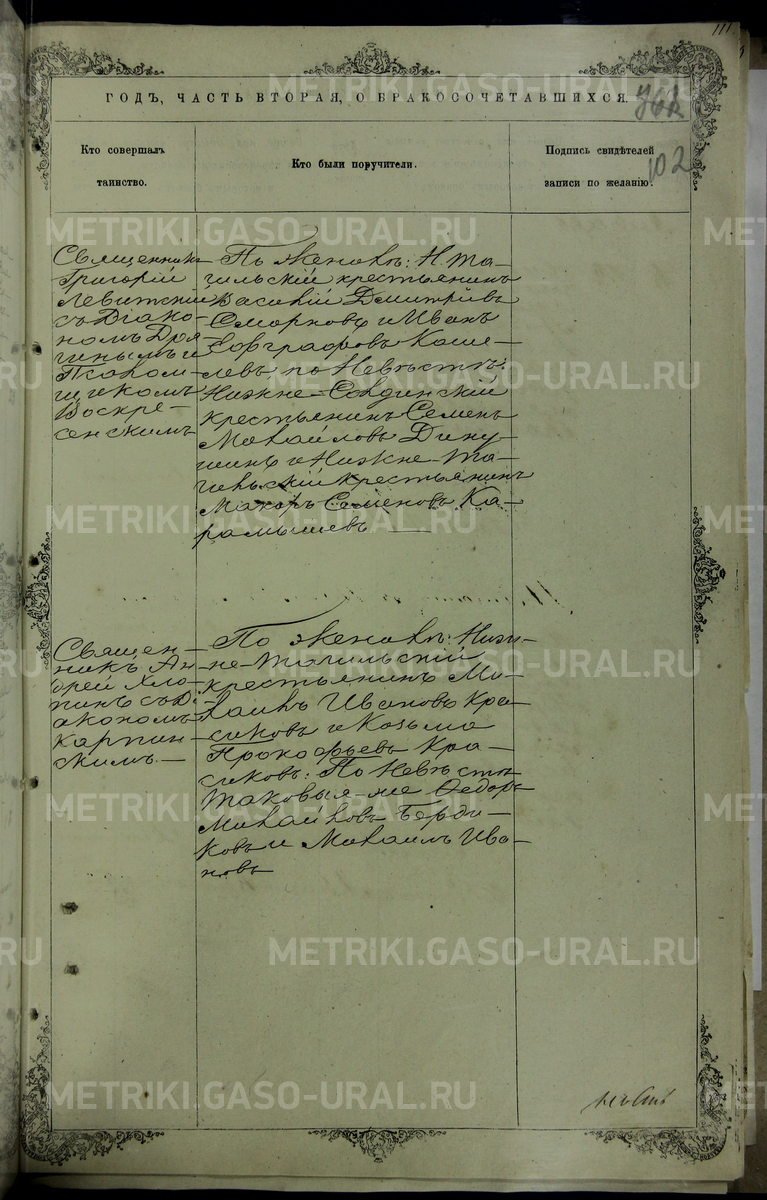 111
ГОДЪ, ЧАСТЬ ВТОРАЯ, О БРАКОСОЧЕТАВШИХСЯ.
102
Кто совершалъ
таинство.
Кто были поручители.
Подпись свидѣтелей
записи по желанію.
Священникъ
Григорій
Левитскій
съ Діако-
номъ Дря-
гинымъ и
Псалом-
щикомъ
Воскре-
сенскимъ
По женихѣ: Н. Та-
гильскій крестьянинъ
Василій Дмитріевъ
и Иванъ
Евграфовъ Коше-
левъ по Невѣстѣ:
Нижне-Салдинскій
крестьянинъ Семенъ
Михайловъ
и Нижне-Та-
гильскій крестьянинъ
Макаръ Семеновъ Ка-
рамышевъ
Священ-
никъ Ан-
дрей Хло-
пинъ съ Ді-
акономъ
Карпин-
скимъ.
По женихѣ: Ниж-
не-Тагильскій
крестьянинъ Ми-
хаилъ Ивановъ Кра-
сиковъ и Козьма
Прокофьевъ Кра-
сиковъ: По Невѣстѣ
таковыя-же Федоръ
Михайловъ Берди-
ковъ и Михаилъ Ива-
новъ
METRIKI.GASO-URAL.RU